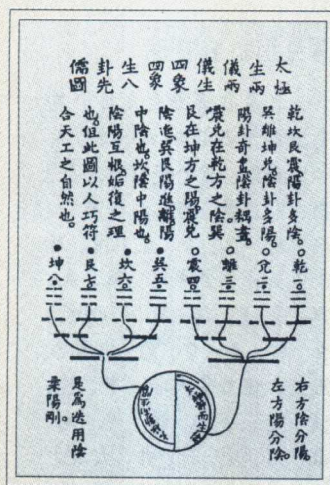 太極
生兩
儀兩
儀生
四象
四象
生八
卦先
儒圖
乾坎艮震陽卦多陰。
巽離坤兌陰卦多陽。
陽卦奇畫陰卦耦畫。
震兌在乾方之陰巽
艮在坤方之陽震兌
陰進巽艮陽進離陽
中陰也。坎陰中陽也。
陰陽互根。姤復之理
也。但此圖以人巧符
合天工之自然也。
乾一
兌二
離三
震四
巽五
坎六
艮七
坤八
右方陰分陽。
左方陽分陰。
是爲迭用陰
柔陽剛。